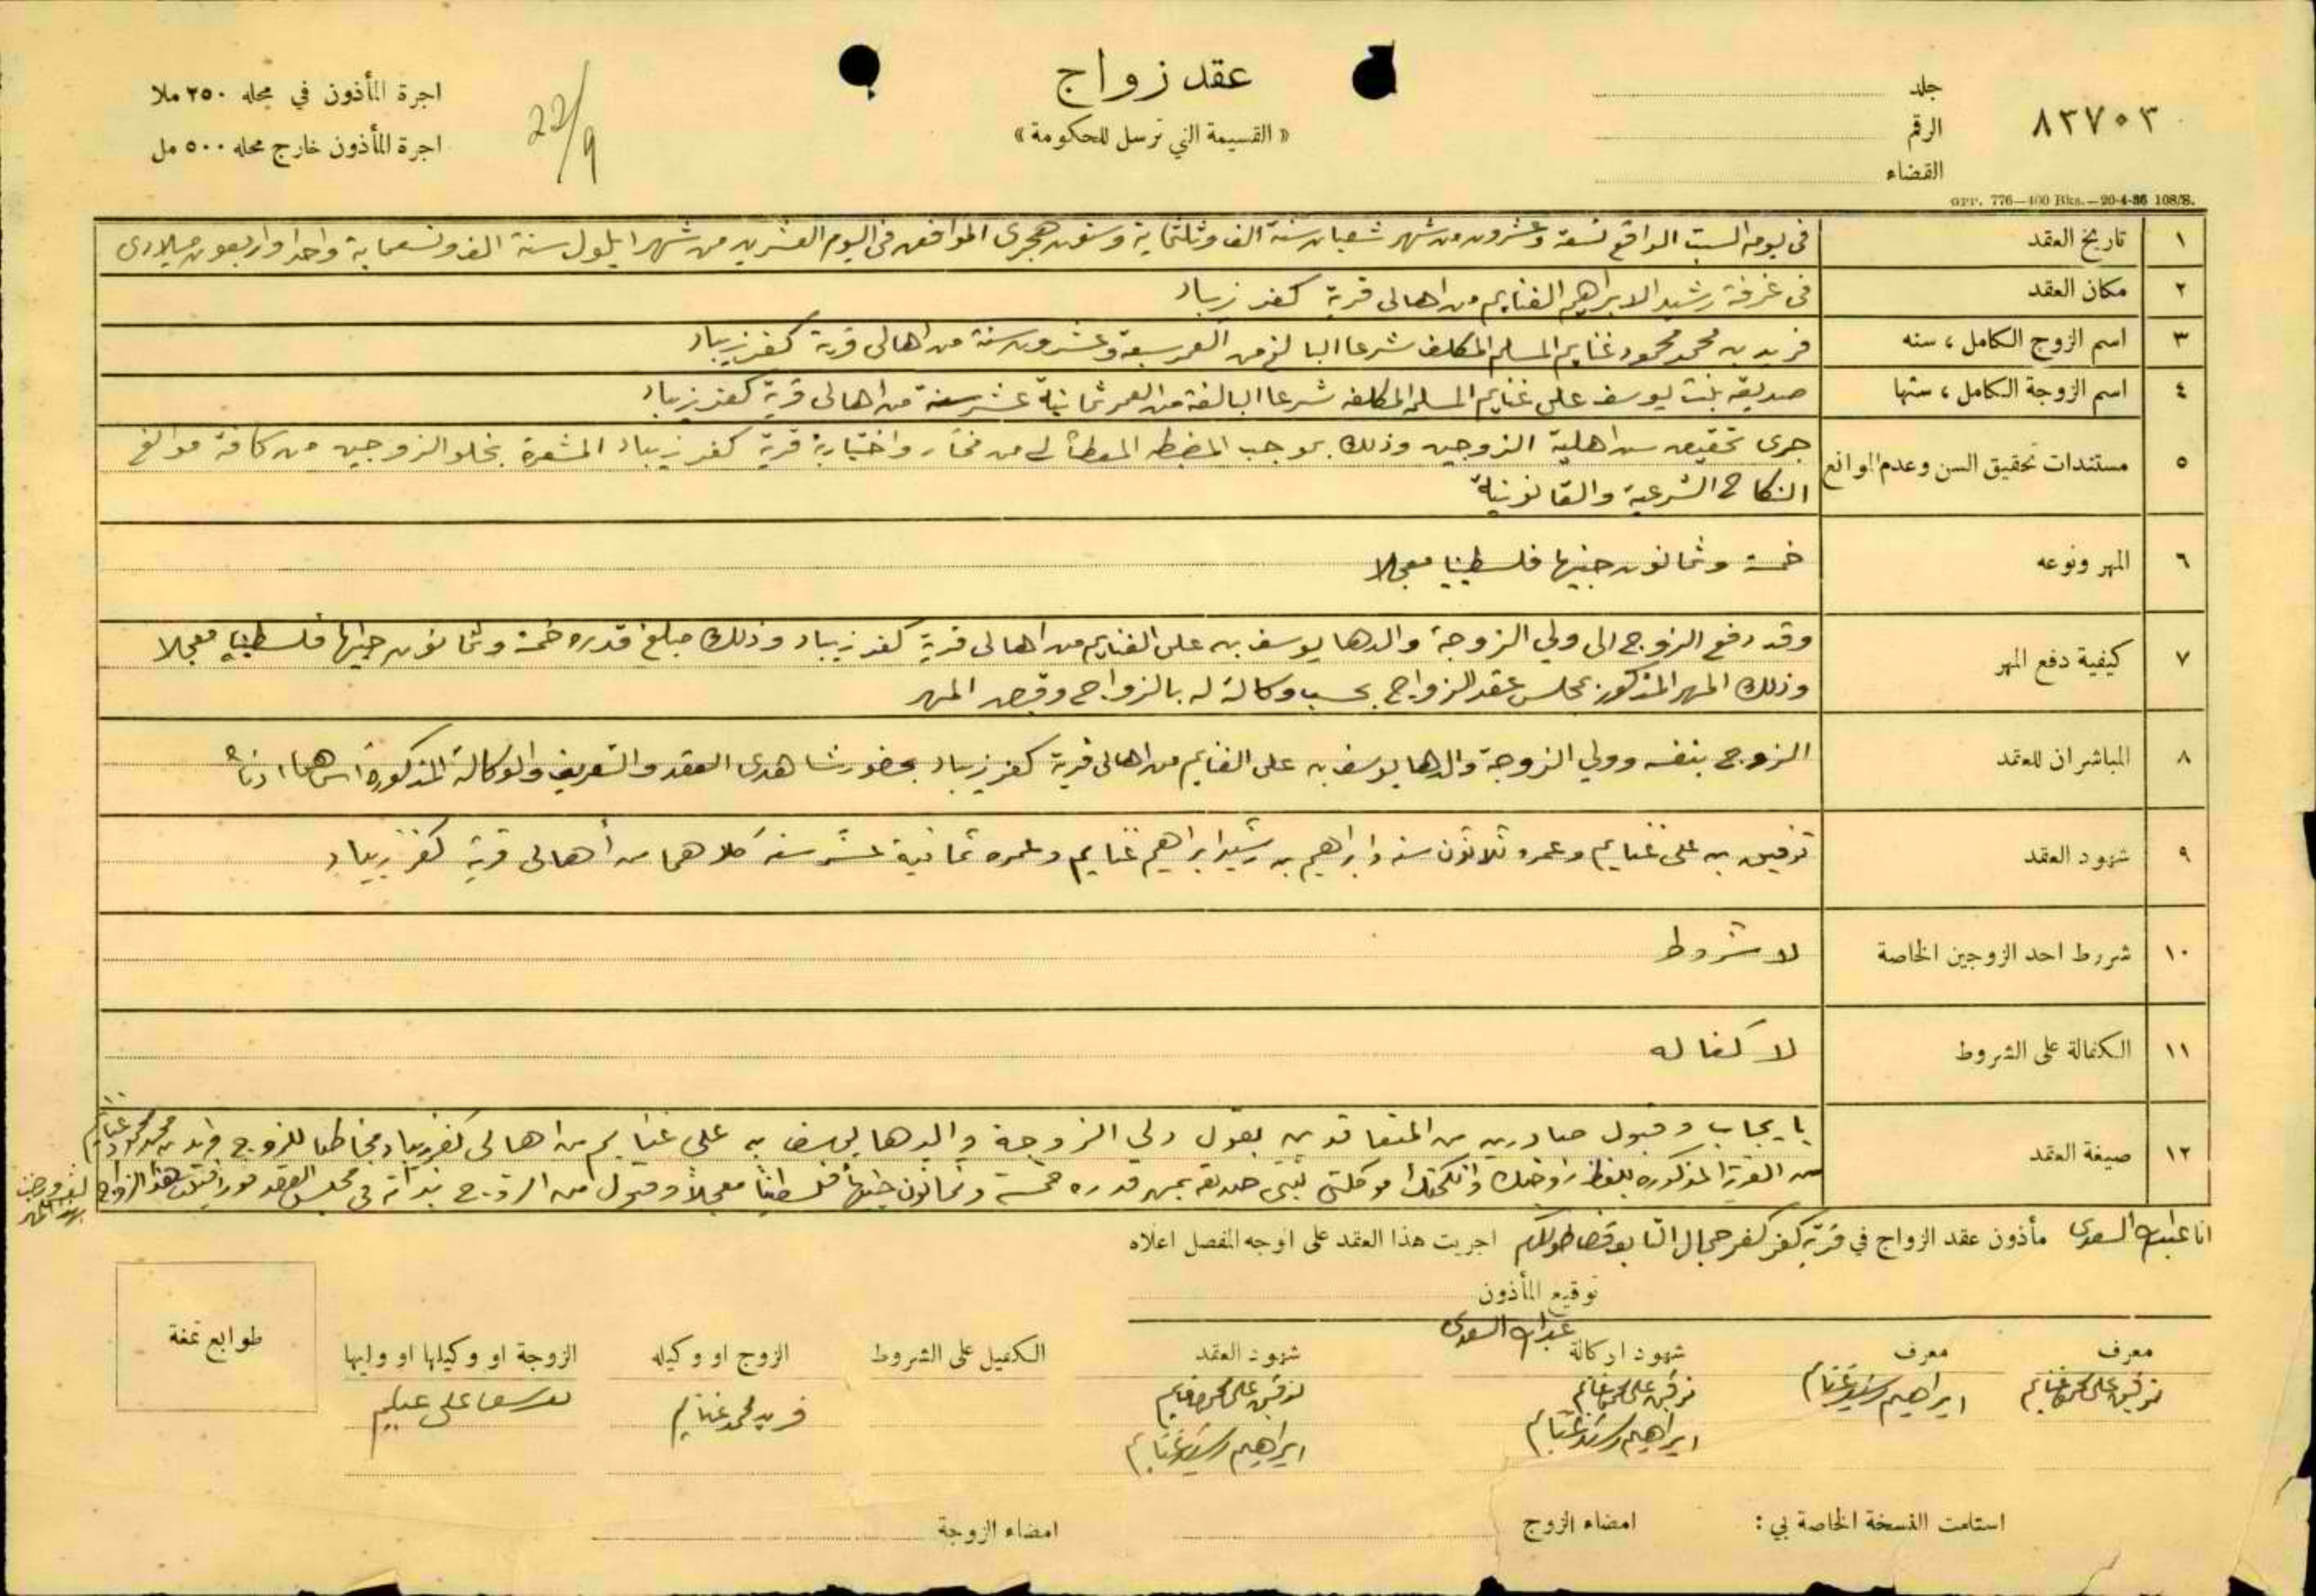 ٨٣٧٠٣
جلد
الرقم
القضاء
عقد زواج
« القسيمة التي ترسل للحكومة »
22/9
اجرة المأذون في محله ٢٥٠ ملا
اجرة المأذون خارج محله ٥٠٠ مل
GPP. 776—100 Bks.—20-4-36 108/S.
١ تاريخ العقد في يوم السبت الواقع تسعة وعشرون من شهر شعبان سنة الف وثلثماية وستون هجرى الموافق في اليوم العشرين من شهر ايلول سنة الف وتسعماية واحدا واربعون ميلادى
٢ مكان العقد في غرفة رشيد الابراهيم الغنايم من اهالى قرية كفر زيباد
٣ اسم الزوج الكامل ، سنه فريد بن محمد محمود غنايم المسلم المكلف شرعا البالغ من العمر سبعة وعشرون سنة من اهالى قرية كفر زيباد
٤ اسم الزوجة الكامل ، سنها صديقه بنت يوسف على غنايم المسلمه المكلفه شرعا البالغة من العمر ثمانية عشر سنة من اهالى قرية كفر زيباد
٥ مستندات تحقيق السن وعدم الموانع جرى تحقيق سن اهلية الزوجين وذلك بموجب المضبطه المعطاه لي من مختار واختيارية قرية كفر زيباد المشعرة بخلو الزوجين من كافة موانع
النكاح الشرعية والقانونية
٦ المهر ونوعه خمسة وثمانون جنيها فلسطينيا معجلا
٧ كيفية دفع المهر وقد دفع الزوج الى ولي الزوجة والدها يوسف بن على الغنايم من اهالى قرية كفر زيباد وذلك مبلغ قدره خمسة وثمانون جنيها فلسطينيا معجلا
وذلك المهر المذكور بمجلس عقد الزواج بحسب وكالة له بالزواج وقبض المهر
٨ المباشران للعقد الزوج بنفسه وولي الزوجة والدها يوسف بن على الغنايم من اهالى قرية كفر زيباد بحضور شاهدى العقد والتعريف والوكالة المذكورة اسماهما ادناه
٩ شهود العقد توفيق بن على غنايم وعمره ثلاثون سنه وابراهيم بن رشيد ابراهيم غنايم وعمره ثمانية عشر سنه كلاهما من أهالى قرية كفر زيباد
١٠ شروط احد الزوجين الخاصة لا شروط
١١ الكفالة على الشروط لا كفاله
١٢ صيغة العقد بايجاب وقبول صادرين من المتعاقدين بقول ولي الزوجة والدها يوسف بن على غنايم من اهالى كفر زيباد مخاطبا للزوج فريد بن محمد محمود غنايم
من القرية المذكوره بلفظ زوجتك وانكحتك موكلتى بنتى صديقه بمهر قدره خمسة وثمانون جنيها فلسطينيا معجلاً وقبول من الزوج بذاته في مجلس العقد فورا قبلت هذا الزواج
لنفسي ورضيت بهذا المهر
انا عبدالله السعدى مأذون عقد الزواج في قرية كفر جمال التابعة قضا طولكرم اجريت هذا العقد على الوجه المفصل اعلاه
توقيع المأذون
عبدالله السعدى
معرف
توفيق على محمود غنايم
معرف
ابراهيم رشيد غنايم
شهود الوكالة
توفيق على محمود غنايم
ابراهيم رشيد غنايم
شهود العقد
توفيق على محمود غنايم
ابراهيم رشيد غنايم
الكفيل على الشروط
الزوج او وكيله
فريد محمد غنايم
الزوجة او وكيلها او وليها
يوسف على غنايم
طوابع تمغة
استلمت النسخة الخاصة بي :
امضاء الزوج
امضاء الزوجة